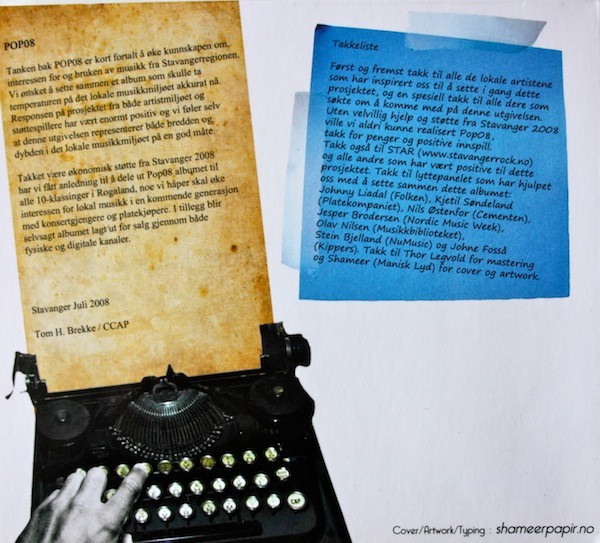 POP08
Tanken bak POP08 er kort fortalt å øke kunnskapen om,
interessen for og bruken av musikk fra Stavangerregionen.
Vi ønsket å sette sammen et album som skulle ta
temperaturen på det lokale musikkmiljøet akkurat nå.
Responsen på prosjektet fra både artistmiljøet og
støttespillere har vært enormt positiv og vi føler selv
at denne utgivelsen representerer både bredden og
dybden i det lokale musikkmiljøet på en god måte.
Takket være økonomisk støtte fra Stavanger 2008
har vi fått anledning til å dele ut Pop08 albumet til
alle 10-klassinger i Rogaland, noe vi håper skal øke
interessen for lokal musikk i en kommende generasjon
med konsertgjengere og platekjøpere. I tillegg blir
selvsagt albumet lagt ut for salg gjennom både
fysiske og digitale kanaler.
Stavanger Juli 2008
Tom H. Brekke / CCAP
Takkeliste
Først og fremst takk til alle de lokale artistene
som har inspirert oss til å sette i gang dette
prosjektet, og en spesiell takk til alle dere som
søkte om å komme med på denne utgivelsen.
Uten velvillig hjelp og støtte fra Stavanger 2008
ville vi aldri kunne realisert Pop08,
takk for penger og positive innspill.
Takk også til STAR (www.stavangerrock.no)
og alle andre som har vært positive til dette
prosjektet. Takk til lyttepanelet som har hjulpet
oss med å sette sammen dette albumet:
Johnny Liadal (Folken), Kjetil Søndeland
(Platekompaniet), Nils Østenfor (Cementen),
Jesper Brodersen (Nordic Music Week),
Olav Nilsen (Musikkbiblioteket),
Stein Bjelland (NuMusic) og Johne Fosså
(Kippers). Takk til Thor Legvold for mastering
og Shameer (Manisk Lyd) for cover og artwork.
Cover/Artwork/Typing : shameerpapir.no